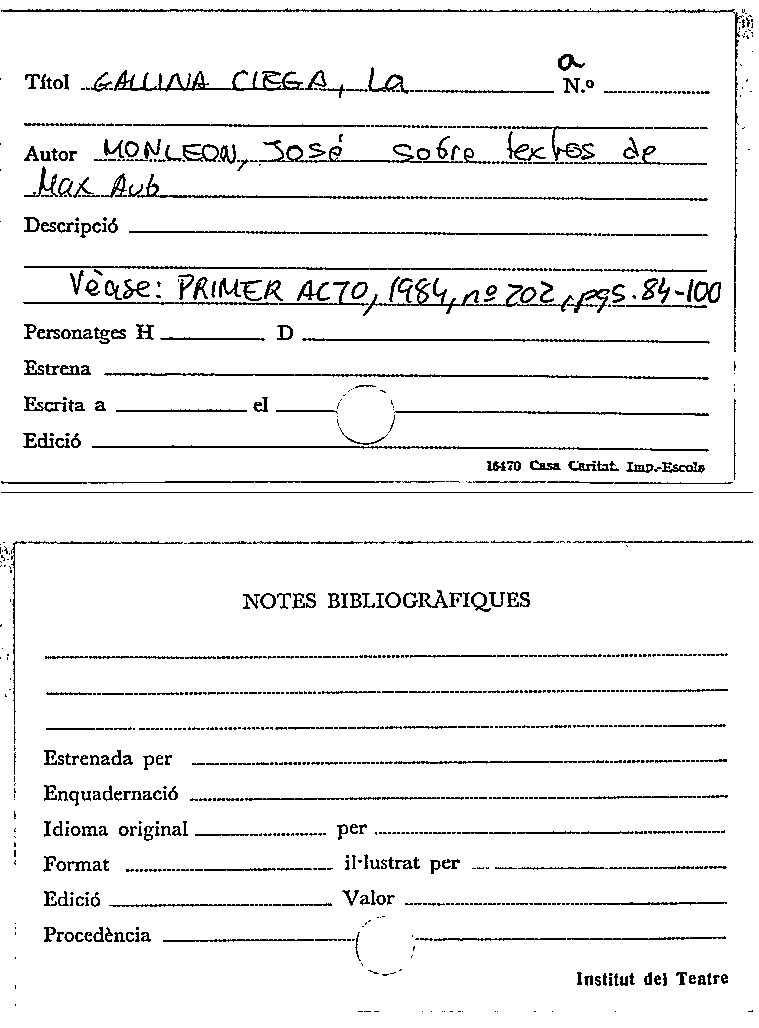 a
Títol GALLINA CIEGA, La N.º
Autor MONLEON, José sobre textos de
Max Aub
Descripció
Vèase: PRIMER ACTO, 1984, nº 202, pgs. 84-100
Personatges H D
Estrena
Escrita a el
Edició
16470 Casa Caritat. Imp.-Escola
NOTES BIBLIOGRÀFIQUES
Estrenada per
Enquadernació
Idioma original per
Format il·lustrat per
Edició Valor
Procedència
Institut del Teatre